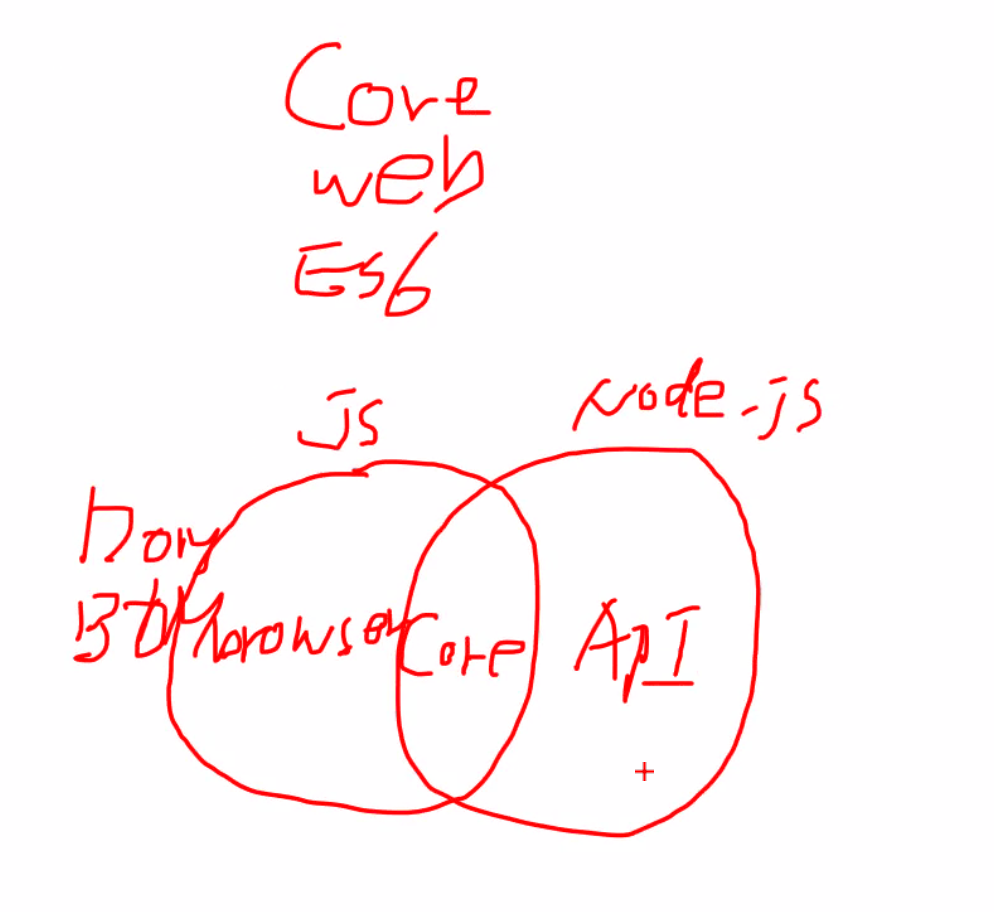 Core
web
Es6
Js
Node.js
Dom
BOM
browser
Core
ApI